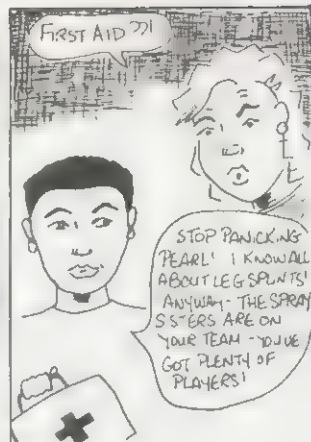 FIRST AID ??!
STOP PANICKING
PEARL! I KNOW ALL
ABOUT LEG SPLINTS!
ANYWAY - THE SPRAY
SISTERS ARE ON
YOUR TEAM - YOU'VE
GOT PLENTY OF
PLAYERS!